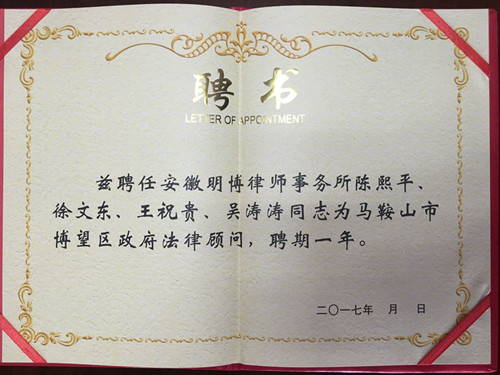 聘书
LETTER OF APPOINTMENT
兹聘任安徽明博律师事务所陈熙平、
徐文东、王祝贵、吴涛涛同志为马鞍山市
博望区政府法律顾问，聘期一年。
二〇一七年 月 日